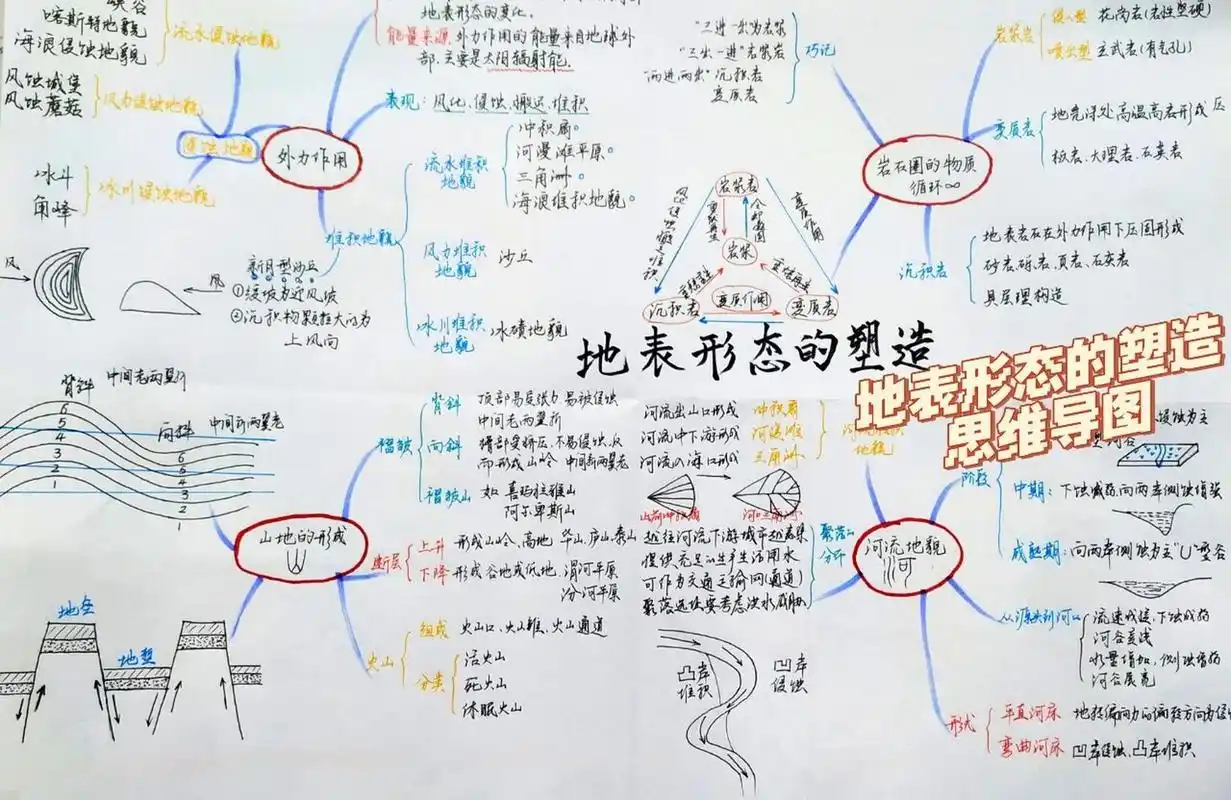 峡谷
喀斯特地貌
海浪侵蚀地貌
流水侵蚀地貌
风蚀城堡
风蚀蘑菇
风力侵蚀地貌
侵蚀地貌
冰斗
角峰
冰川侵蚀地貌
外力作用
地表形态的变化.
能量来源 外力作用的能量来自地球外
部.主要是太阳辐射能.
表现：风化、侵蚀、搬运、堆积
堆积地貌
流水堆积
地貌
冲积扇。
河漫滩平原。
三角洲。
海浪堆积地貌。
风力堆积
地貌
沙丘
冰川堆积
地貌
冰碛地貌
风
风
新月型沙丘
①缓坡为迎风坡
②沉积物颗粒大的为
上风向
"三进一出"为岩浆
"三出一进"岩浆岩
"两进两出"沉积岩
变质岩
巧记
岩石圈的物质
循环∞
岩浆岩
侵入型 花岗岩(岩性坚硬)
喷出型 玄武岩(有气孔)
变质岩
地壳深处高温高压形成
板岩、大理岩、石英岩
沉积岩
地表岩石在外力作用下压固形成
砂岩、砾岩、页岩、石灰岩
具层理构造
岩浆岩
岩浆
沉积岩
变质作用
变质岩
变质作用
重熔再生
冷却凝固
重熔再生
重熔再生
地表形态的塑造
地表形态的塑造
思维导图
背斜 中间老两翼新
向斜 中间新两翼老
6
5
4
3
2
1
6
5
4
3
2
1
山地的形成
褶皱
背斜
顶部易受张力易被侵蚀
中间老两翼新
向斜
槽部受挤压,不易侵蚀,反
而形成山岭 中间新两翼老
褶皱山
如 喜马拉雅山
阿尔卑斯山
断层
上升 形成山岭、高地 华山、庐山、泰山
下降 形成谷地或低地 渭河平原
汾河平原
火山
组成 火山口、火山锥、火山通道
分类
活火山
死火山
休眠火山
地垒
地堑
河流出山口形成 冲积扇
河流中下游形成 河漫滩
河流入海口形成 三角洲
地貌
山前冲积扇
河口三角洲
越往河流下游城市越密集
提供充足的生产生活用水
可作为交通运输网(通道)
聚落选址要考虑洪水威胁
聚落
分布
河流地貌
河
阶段
侵蚀为主
中期：下蚀减弱,向两岸侧蚀增强
成熟期：向两岸侧蚀为主"U"型谷
从源头到河口
流速减缓、下蚀减弱
河谷变浅
水量增加,侧蚀增强
河谷展宽
形式
平直河床 地转偏向力的偏转方向为侵
弯曲河床 凹岸侵蚀、凸岸堆积
凸岸
堆积
凹岸
侵蚀